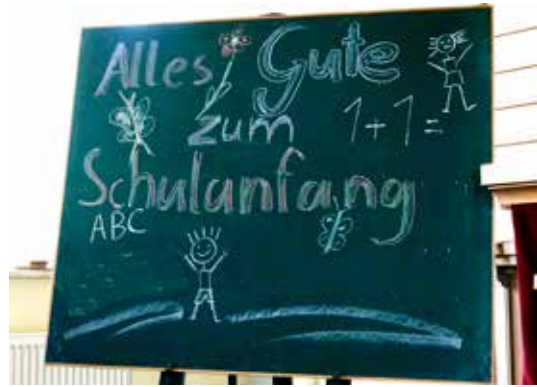 Alles Gute
zum 1+1=
Schulanfang
ABC